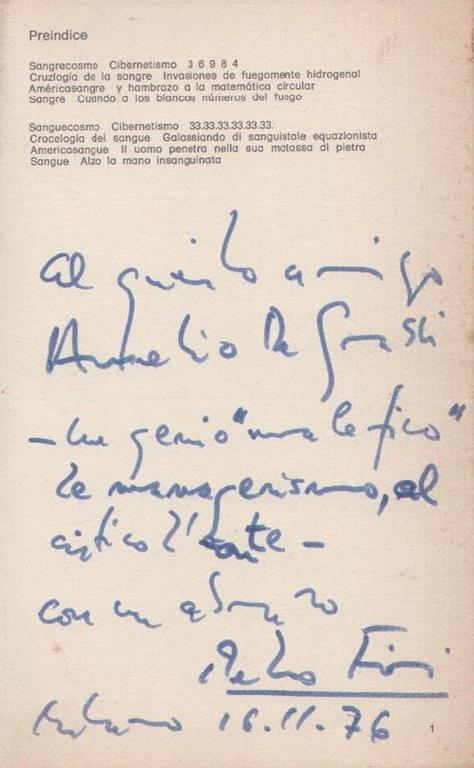 Preindice
Sangrecosmo Cibernetismo 3 6 9 8 4
Cruzlogía de la sangre Invasiones de fuegomente hidrogenal
Américasangre y hambrazo a la matemática circular
Sangre Cuando a los blancos números del fuego
Sanguecosmo Cibernetismo 33.33.33.33.33.33.
Crocelogia del sangue Galassiando di sanguistale equazionista
Americasangue Il uomo penetra nella sua matassa di pietra
Sangue Alzo la mano insanguinata
al amigo
Aurelio De Grassi
- un genio "malefico"
managerismo, al
con un abrazo
Milano 16.11.76
1